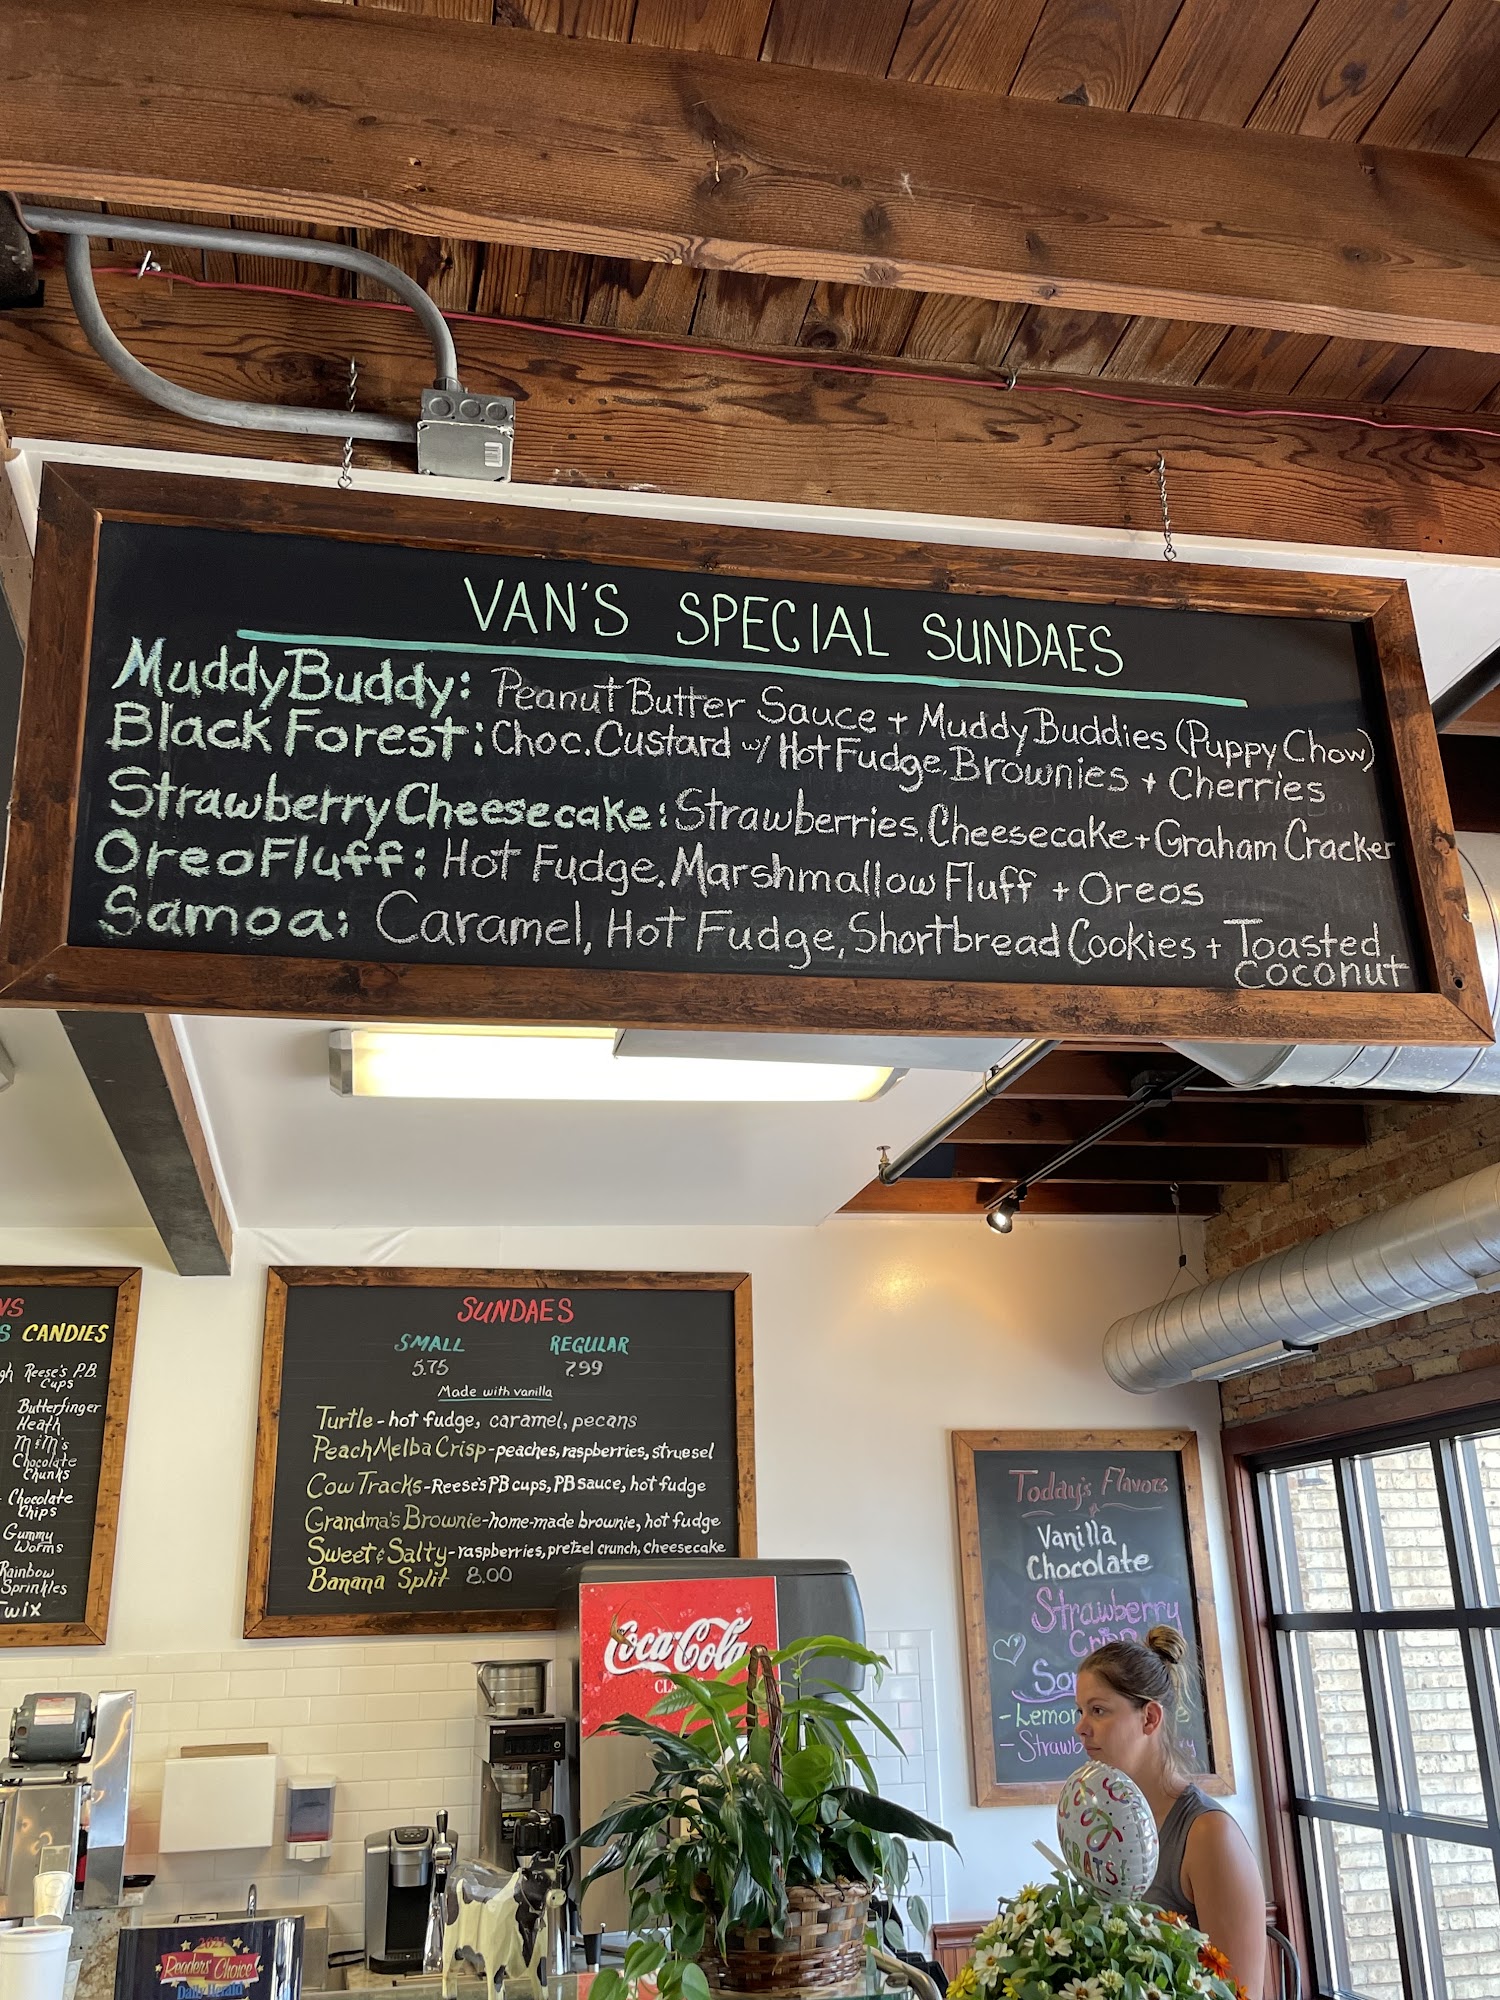 VAN'S SPECIAL SUNDAES
MuddyBuddy: Peanut Butter Sauce + Muddy Buddies (Puppy Chow)
Black Forest: Choc. Custard w/ Hot Fudge, Brownies + Cherries
Strawberry Cheesecake: Strawberries, Cheesecake + Graham Cracker
Oreo Fluff: Hot Fudge, Marshmallow Fluff + Oreos
Samoa: Caramel, Hot Fudge, Shortbread Cookies + Toasted
Coconut
CANDIES
Reese's P.B.
Cups
Butterfinger
Heath
M&M's
Chocolate
Chunks
Chocolate
Chips
Gummy
Worms
Rainbow
Sprinkles
Twix
SUNDAES
SMALL REGULAR
5.75 7.99
Made with vanilla
Turtle - hot fudge, caramel, pecans
Peach Melba Crisp - peaches, raspberries, struesel
Cow Tracks - Reese's PB cups, PB sauce, hot fudge
Grandma's Brownie - home-made brownie, hot fudge
Sweet & Salty - raspberries, pretzel crunch, cheesecake
Banana Split 8.00
Coca-Cola
Today's Flavors
Vanilla
Chocolate
Strawberry
- Lemon
- Strawb
2021
Readers' Choice
Daily Herald